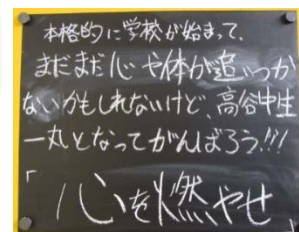 本格的に学校が始まって、
まだまだ心や体が追いつか
ないかもしれないけど、高谷中生
一丸となってがんばろう!!!
「心を燃やせ」